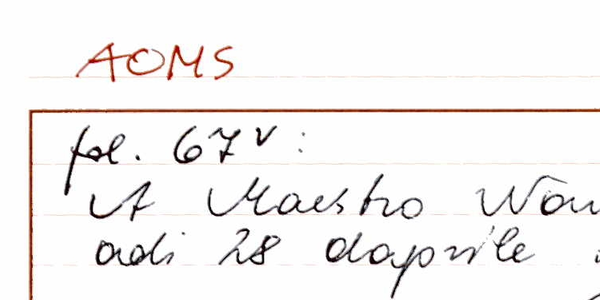 AOMS
fol. 67v:
A Maestro
adi 28 daprile